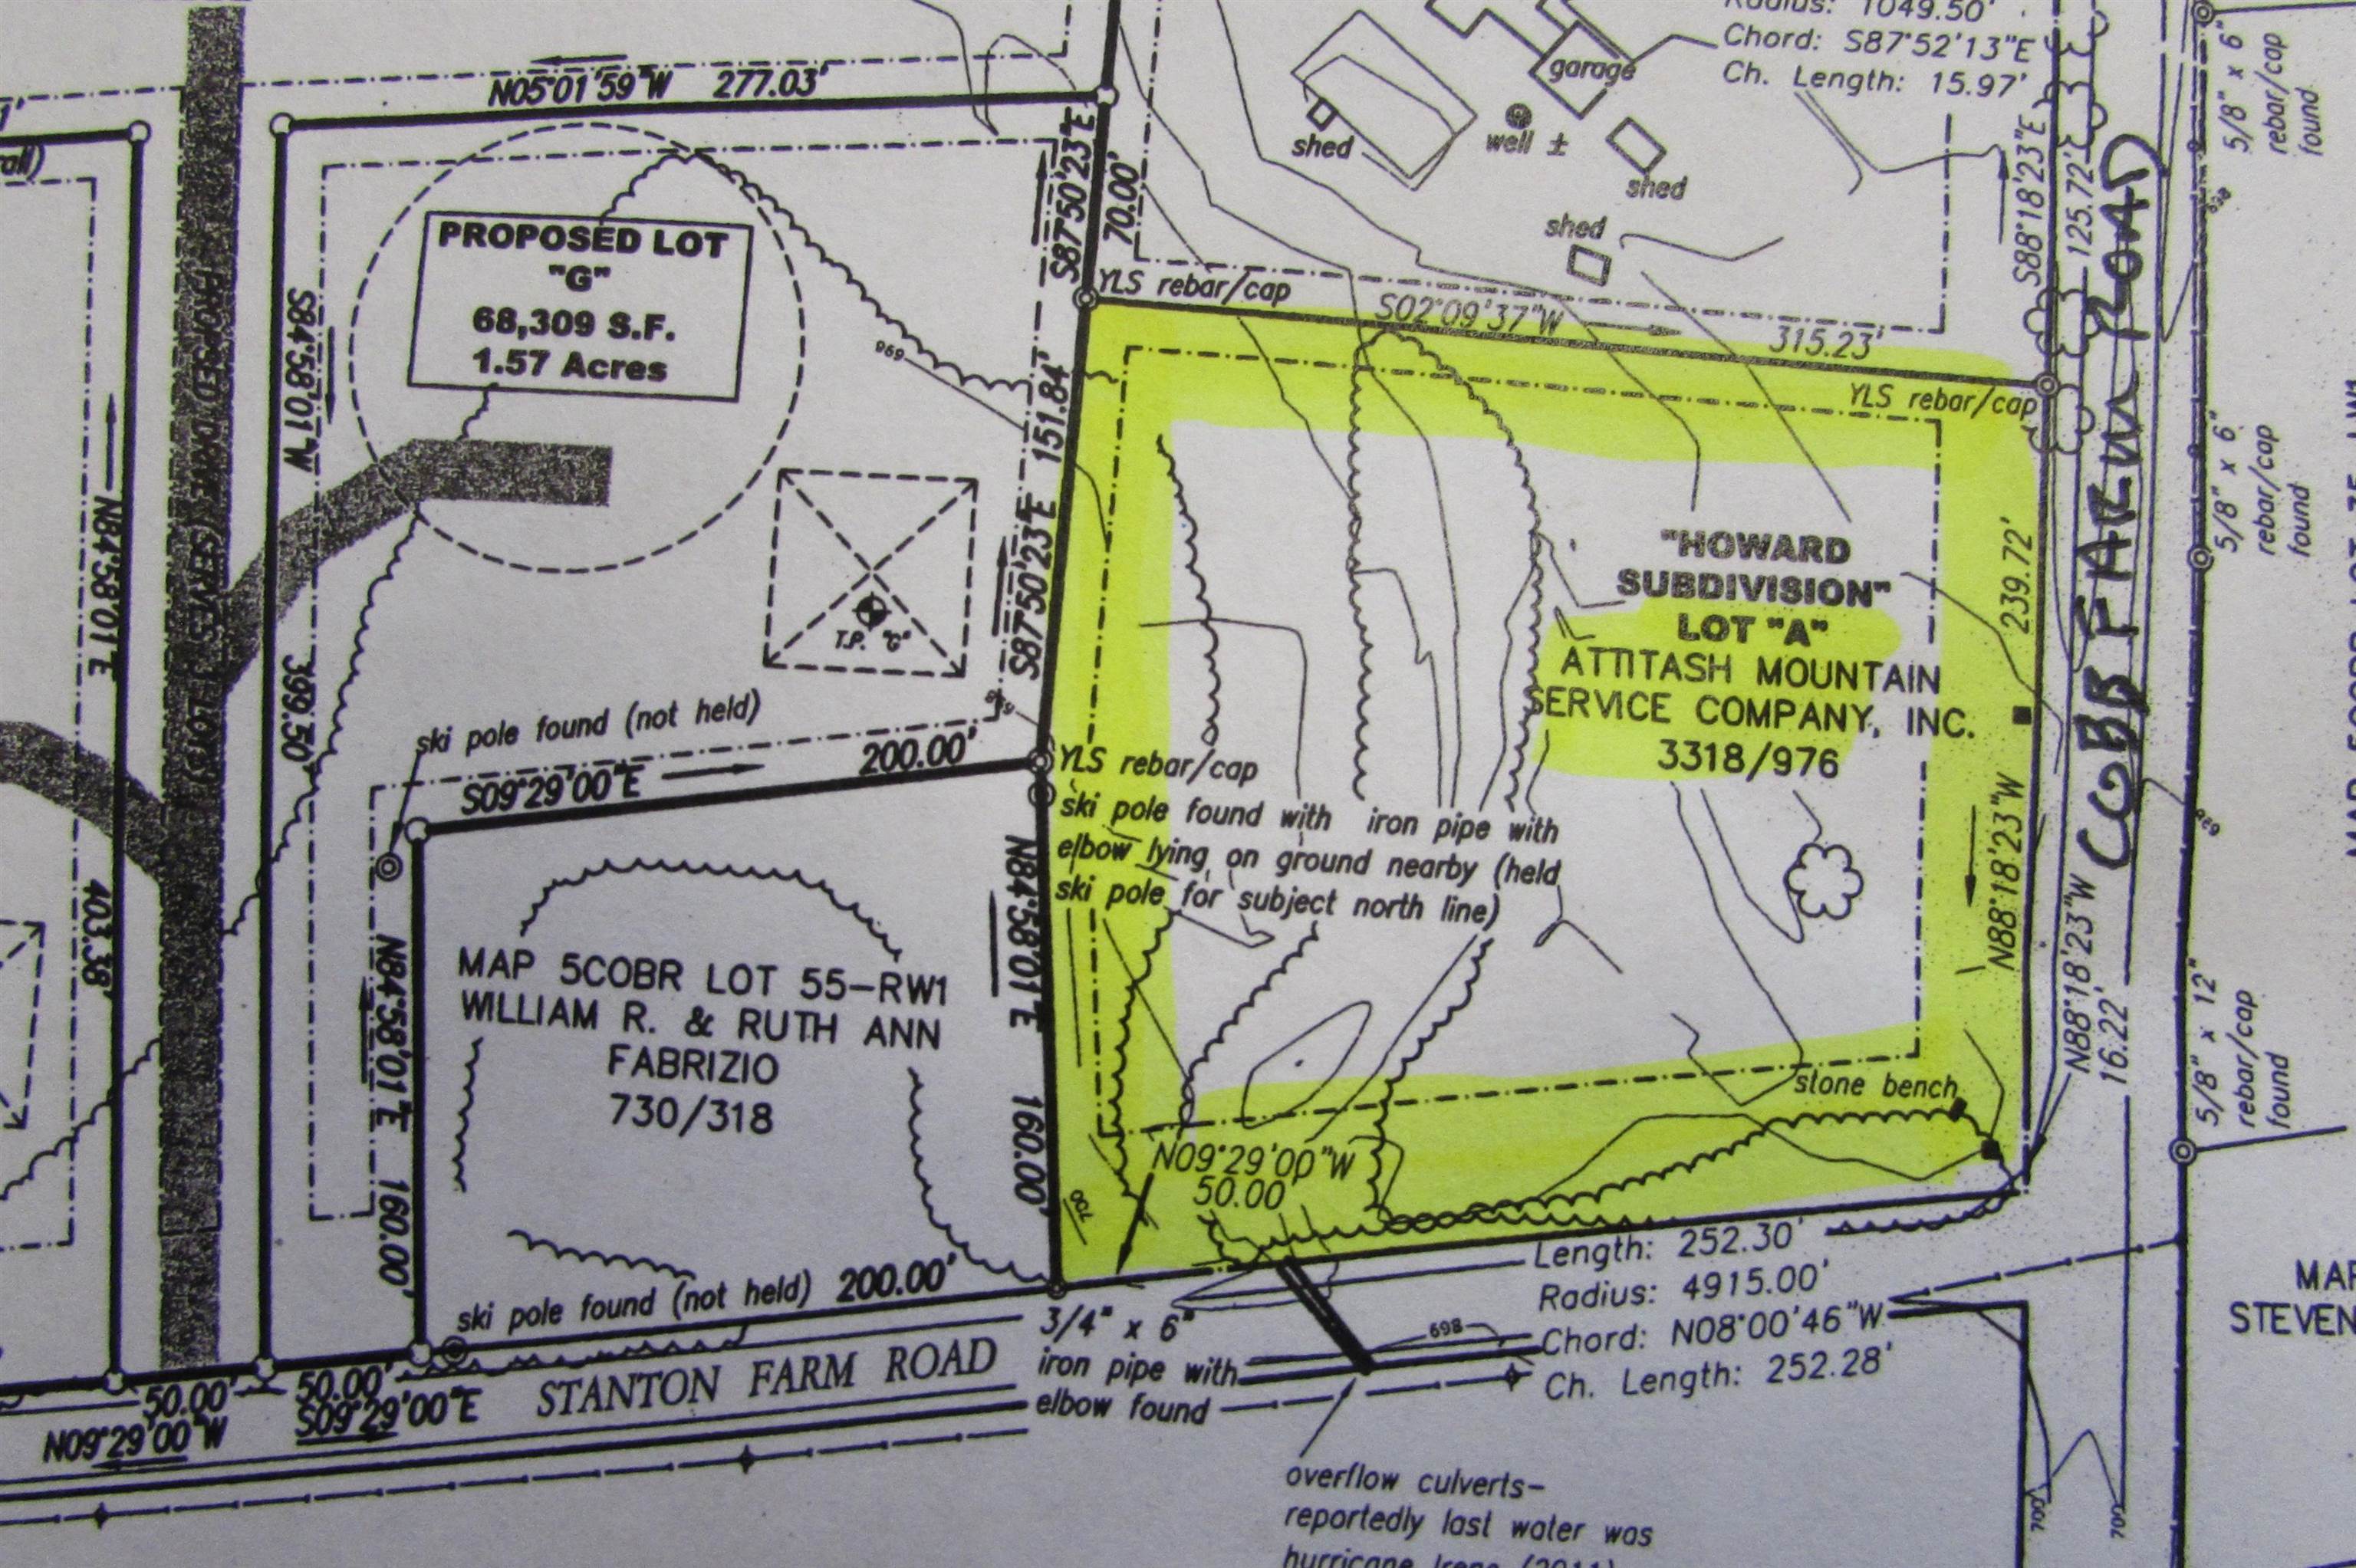 Radius: 1049.50'
Chord: S87°52'13"E
Ch. Length: 15.97'
garage
shed
well ±
shed
shed
N05°01'59"W 277.03'
S87°50'23"E
70.00'
YLS rebar/cap
S02°09'37"W
315.23'
YLS rebar/cap
S88°18'23"E
125.72'
COBB FARM ROAD
5/8" x 6"
rebar/cap
found
5/8" x 6"
rebar/cap
found
5/8" x 12"
rebar/cap
found
PROPOSED LOT
"G"
68,309 S.F.
1.57 Acres
969
S84°58'01"W
399.50'
N84°58'01"E
403.38'
T.P. "G"
S87°50'23"E 151.84'
ski pole found (not held)
S09°29'00"E
200.00'
"HOWARD
SUBDIVISION"
LOT "A"
ATTITASH MOUNTAIN
SERVICE COMPANY, INC.
3318/976
239.72'
N88°18'23"W
N88°18'23"W
16.22'
YLS rebar/cap
ski pole found with iron pipe with
elbow lying on ground nearby (held
ski pole for subject north line)
N84°58'01"E 160.00'
MAP 5COBR LOT 55-RW1
WILLIAM R. & RUTH ANN
FABRIZIO
730/318
N84°58'01"E 160.00'
stone bench
N09°29'00"W
50.00'
700
ski pole found (not held) 200.00'
50.00'
N09°29'00"W
50.00'
S09°29'00"E
STANTON FARM ROAD
3/4" x 6"
iron pipe with
elbow found
Length: 252.30'
Radius: 4915.00'
Chord: N08°00'46"W
Ch. Length: 252.28'
698
overflow culverts-
reportedly last water was
hurricane Irene (2011)
MAP
STEVEN
700